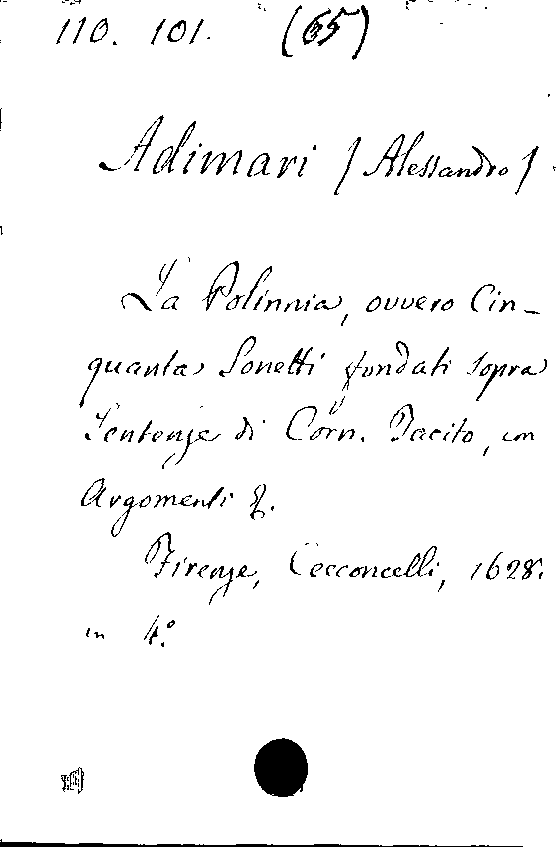 110. 101. (65)
Adimari (Alessandro)
La Polinnia, ovvero Cin-
quanta Sonetti fondati sopra
Sentenze di Corn. Tacito, con
Argomenti &.
Firenze, Cecconcelli, 1628.
in 4.º